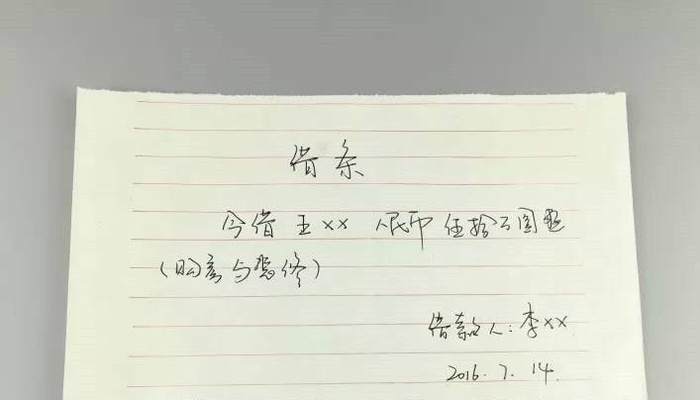 借条
今借 王×× 人民币 伍拾万圆整
(购房与装修)
借款人:李××
2016.7.14.